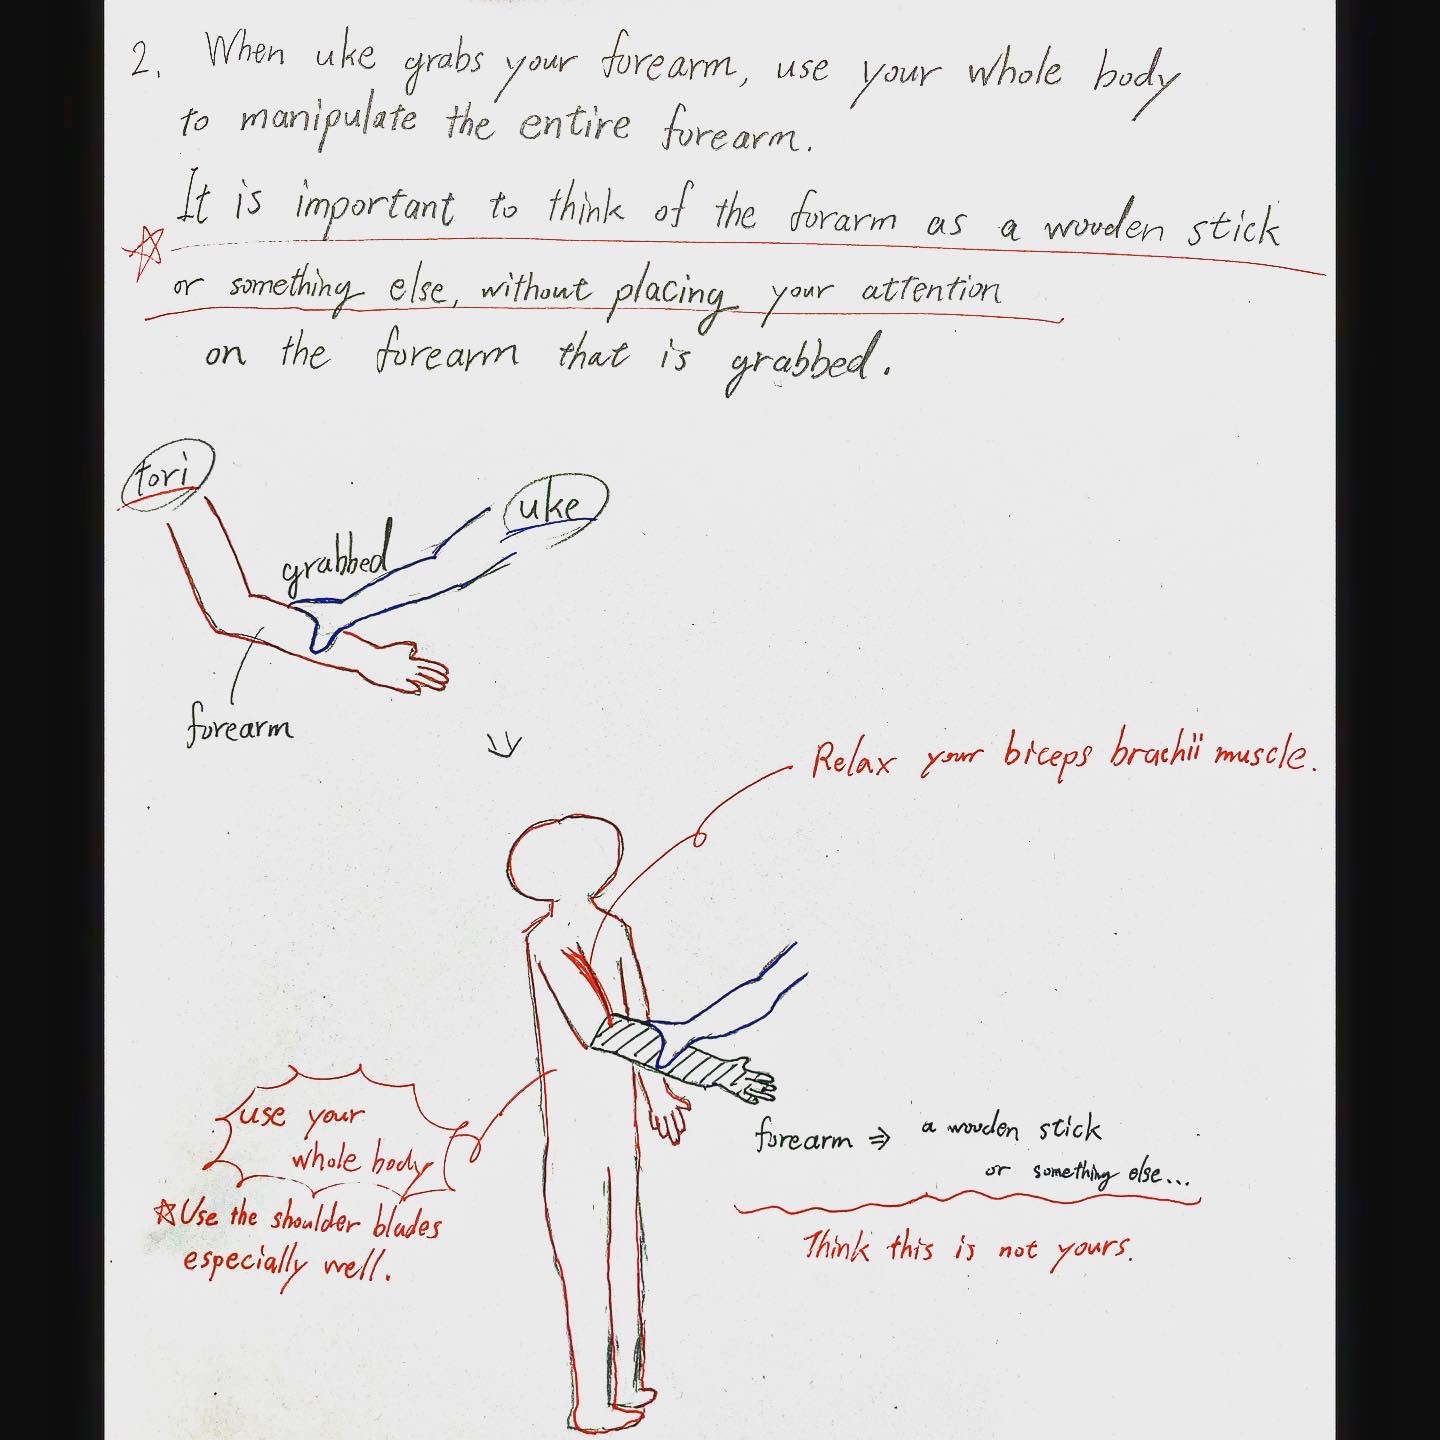 2. When uke grabs your forearm, use your whole body
to manipulate the entire forearm.
It is important to think of the forarm as a wooden stick
or something else, without placing your attention
on the forearm that is grabbed.
tori
uke
grabbed
forearm
Relax your biceps brachii muscle.
use your
whole body
☆Use the shoulder blades
especially well.
forearm ⇒ a wooden stick
or something else...
Think this is not yours.